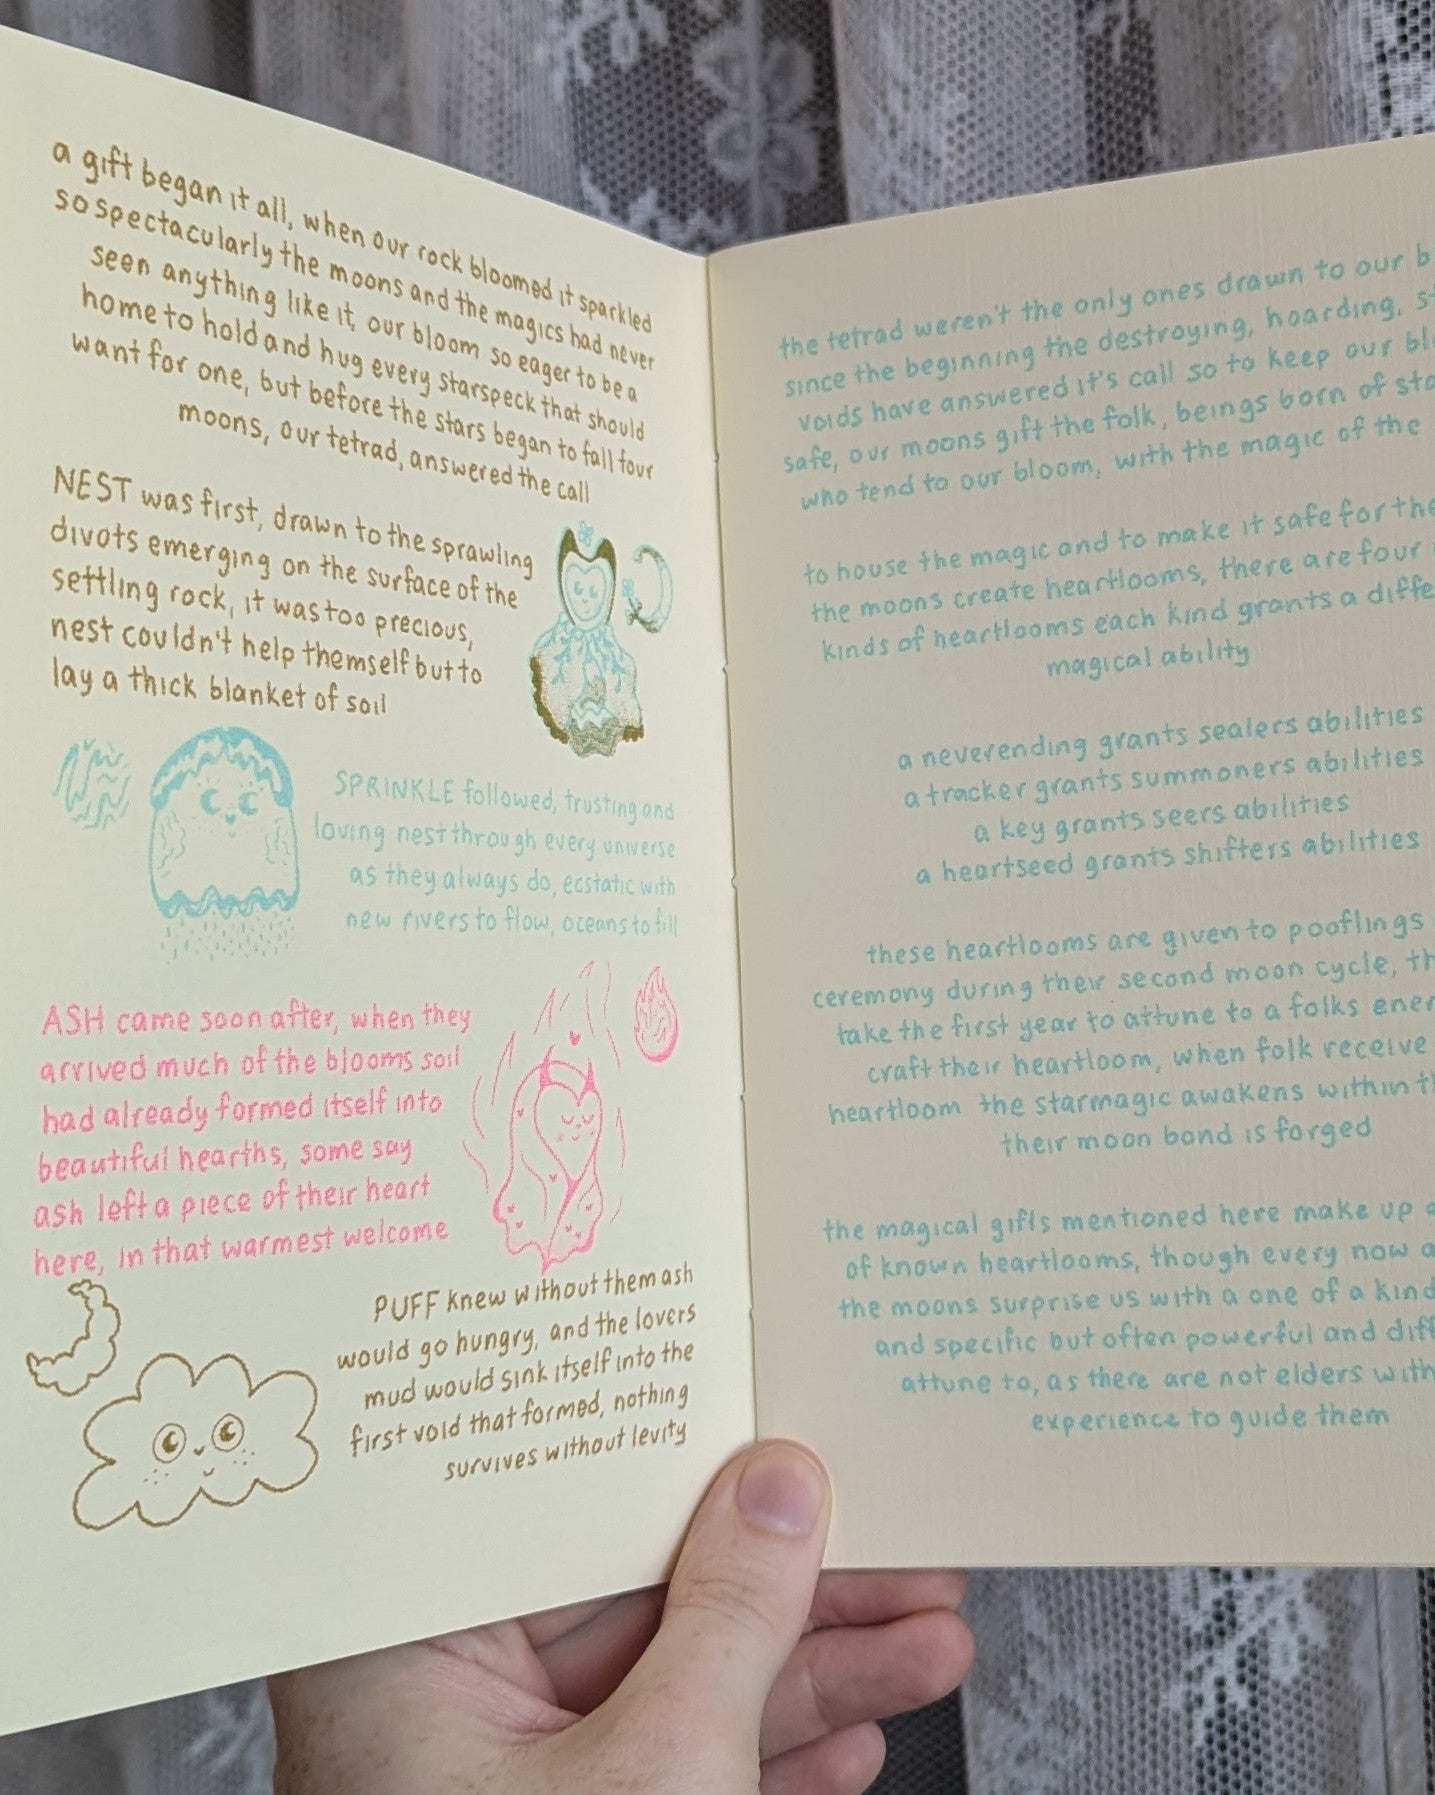 a gift began it all, when our rock bloomed it sparkled
so spectacularly the moons and the magics had never
seen anything like it, our bloom so eager to be a
home to hold and hug every starspeck that should
want for one, but before the stars began to fall four
moons, our tetrad, answered the call
NEST was first, drawn to the sprawling
divots emerging on the surface of the
settling rock, it was too precious,
nest couldn't help themself but to
lay a thick blanket of soil
SPRINKLE followed, trusting and
loving nest through every universe
as they always do, ecstatic with
new rivers to flow, oceans to fill
ASH came soon after, when they
arrived much of the blooms soil
had already formed itself into
beautiful hearths, some say
ash left a piece of their heart
here, in that warmest welcome
PUFF knew without them ash
would go hungry, and the lovers
mud would sink itself into the
first void that formed, nothing
survives without levity
the tetrad weren't the only ones drawn to our
since the beginning the destroying, hoarding,
voids have answered it's call so to keep our
safe, our moons gift the folk, beings born of
who tend to our bloom, with the magic of the
to house the magic and to make it safe for the
the moons create heartlooms, there are four
kinds of heartlooms each kind grants a
magical ability
a neverending grants sealers abilities
a tracker grants summoners abilities
a key grants seers abilities
a heartseed grants shifters abilities
these heartlooms are given to pooflings
ceremony during their second moon cycle,
take the first year to attune to a folks
craft their heartloom, when folk receive
heartloom the starmagic awakens within
their moon bond is forged
the magical gifts mentioned here make up
of known heartlooms, though every now
the moons surprise us with a one of a kind
and specific but often powerful and
attune to, as there are not elders with
experience to guide them